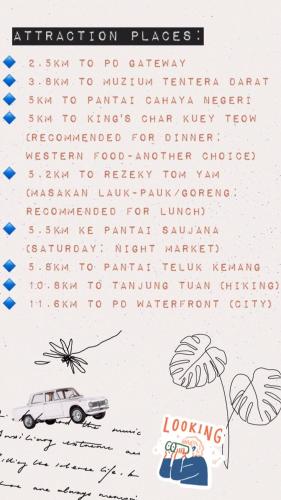 ATTRACTION PLACES:
2.5KM TO PD GATEWAY
3.8KM TO MUZIUM TENTERA DARAT
5KM TO PANTAI CAHAYA NEGERI
5KM TO KING'S CHAR KUEY TEOW
(RECOMMENDED FOR DINNER;
WESTERN FOOD-ANOTHER CHOICE)
5.2KM TO REZEKY TOM YAM
(MASAKAN LAUK-PAUK/GORENG;
RECOMMENDED FOR LUNCH)
5.5KM KE PANTAI SAUJANA
(SATURDAY: NIGHT MARKET)
5.8KM TO PANTAI TELUK KEMANG
10.8KM TO TANJUNG TUAN (HIKING)
11.6KM TO PD WATERFRONT (CITY)
LOOKING
the music
extreme
the intense life.
are always